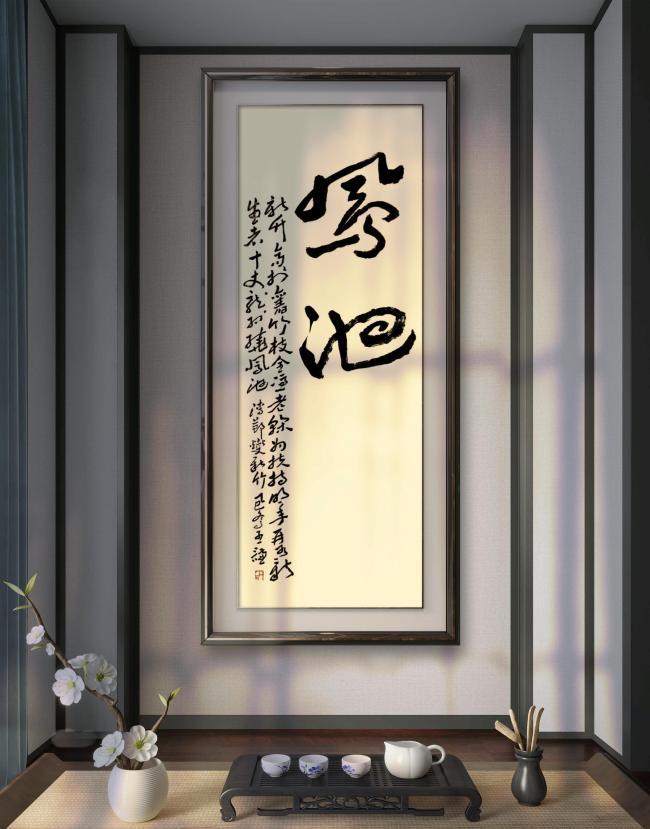 鳳池
新竹高於舊竹枝全憑老幹為扶持明年再有新
生者十丈龍孫繞鳳池 清鄭燮新竹